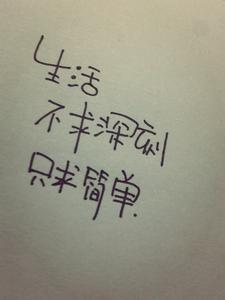 生活
不求深刻
只求簡单.